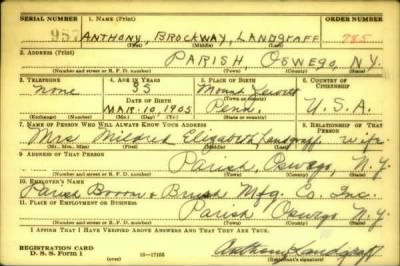 SERIAL NUMBER 1. NAME (Print) ORDER NUMBER
957 ANTHONY, BROCKWAY, LANDGRAFF 785
(First) (Middle) (Last)
2. ADDRESS (Print)
PARISH, OSWEGO, N.Y.
(Number and street or R. F. D. number) (Town) (County) (State)
3. TELEPHONE 4. AGE IN YEARS 5. PLACE OF BIRTH 6. COUNTRY OF CITIZENSHIP
None 35 Mount Jewett
DATE OF BIRTH (Town or county)
MAR. 10, 1905 Penn. U.S.A.
(Exchange) (Number) (Mo.) (Day) (Yr.) (State or country)
7. NAME OF PERSON WHO WILL ALWAYS KNOW YOUR ADDRESS 8. RELATIONSHIP OF THAT PERSON
Mrs Mildred Elizabeth Landgraff wife
(Mr., Mrs., Miss) (First) (Middle) (Last)
9. ADDRESS OF THAT PERSON
Parish, Oswego, N.Y.
(Number and street or R. F. D. number) (Town) (County) (State)
10. EMPLOYER'S NAME
Parish Broom & Brush Mfg. Co. Inc.
11. PLACE OF EMPLOYMENT OR BUSINESS
Parish Oswego N.Y.
(Number and street or R. F. D. number) (Town) (County) (State)
I AFFIRM THAT I HAVE VERIFIED ABOVE ANSWERS AND THAT THEY ARE TRUE.
REGISTRATION CARD
D. S. S. Form 1 16—17105 Anthony Landgraff
(Registrant's signature)